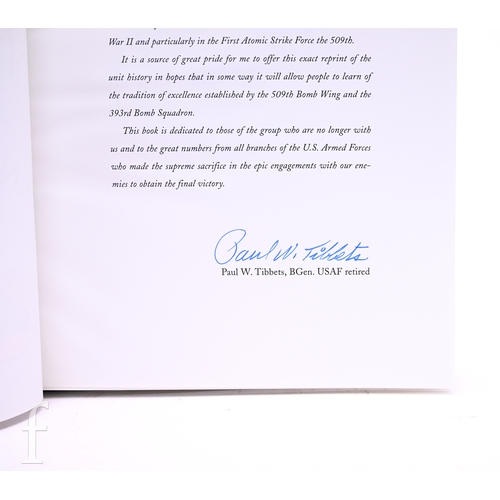 War II and particularly in the First Atomic Strike Force the 509th.
It is a source of great pride for me to offer this exact reprint of the
unit history in hopes that in some way it will allow people to learn of
the tradition of excellence established by the 509th Bomb Wing and the
393rd Bomb Squadron.
This book is dedicated to those of the group who are no longer with
us and to the great numbers from all branches of the U.S. Armed Forces
who made the supreme sacrifice in the epic engagements with our ene-
mies to obtain the final victory.
Paul W. Tibbets
Paul W. Tibbets, BGen. USAF retired
f